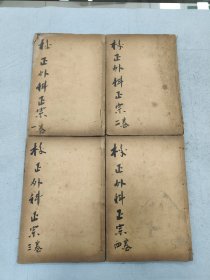 校正外科正宗 一卷
校正外科正宗 二卷
校正外科正宗 三卷
校正外科正宗 四卷